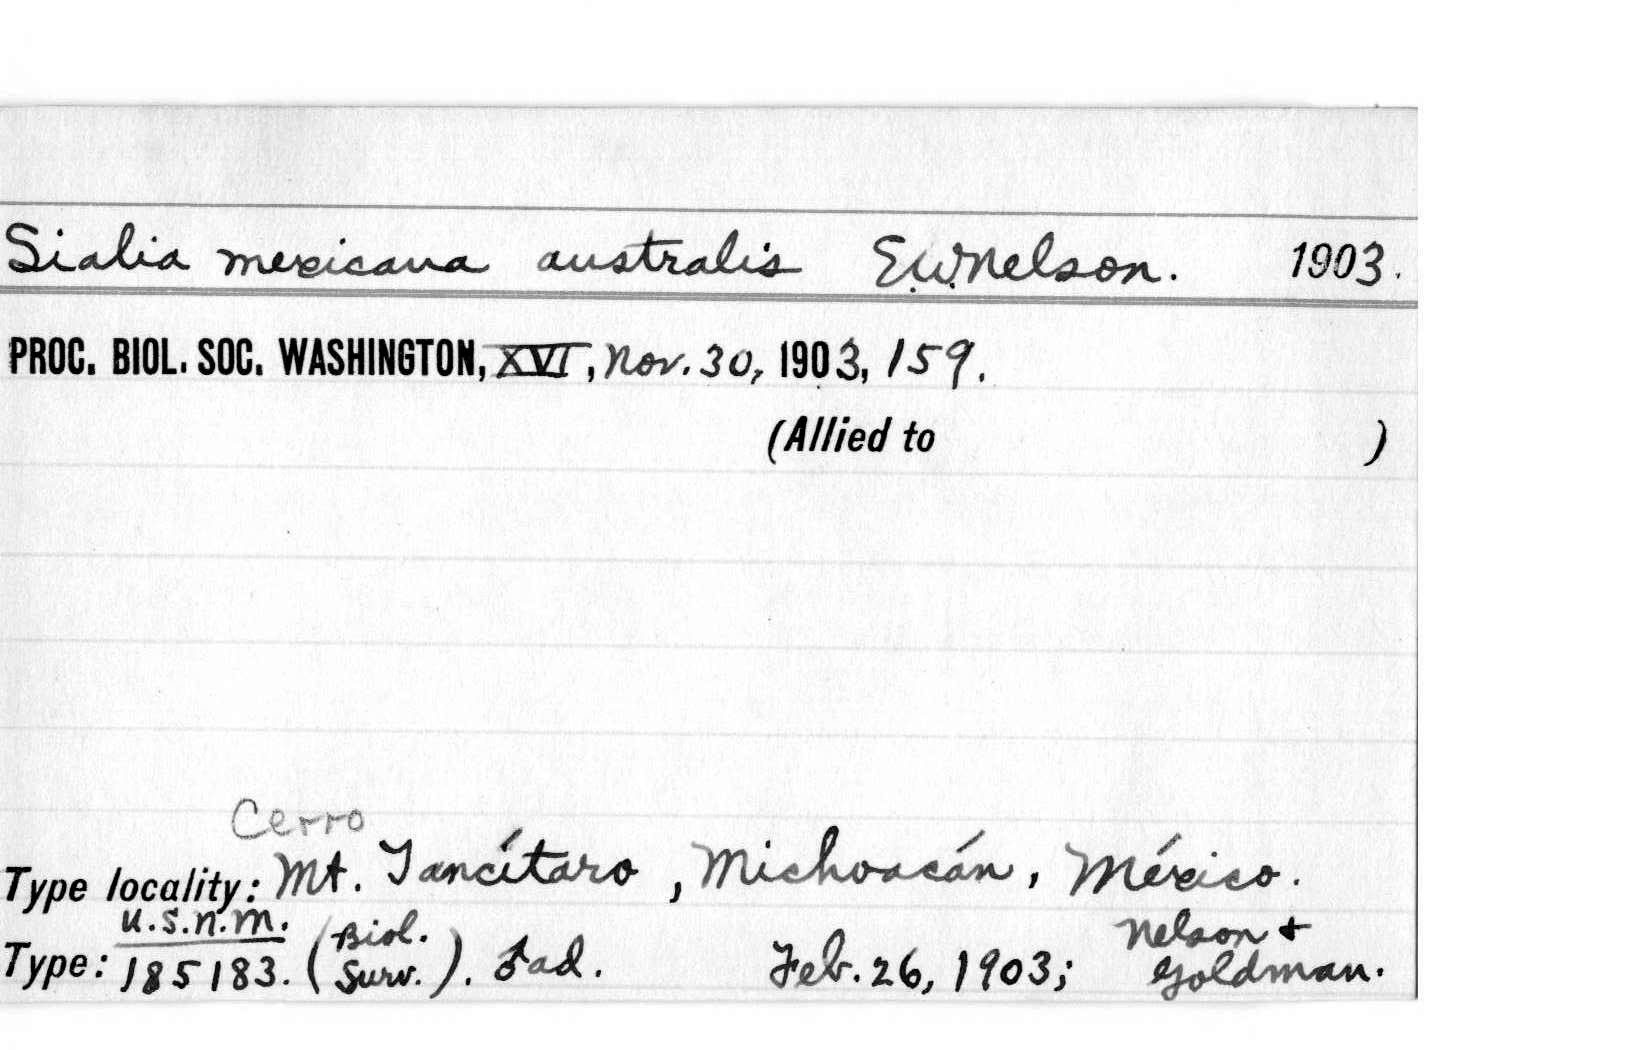 Sialia mexicana australis E.W. Nelson. 1903.
PROC. BIOL. SOC. WASHINGTON, XVI, Nov. 30, 1903, 159.
(Allied to )
Cerro
Type locality: Mt. Tancítaro, Michoacán, México.
U.S.N.M. (Biol. Nelson +
Type: 185183. Surv.). ♂ ad. Feb. 26, 1903; Goldman.